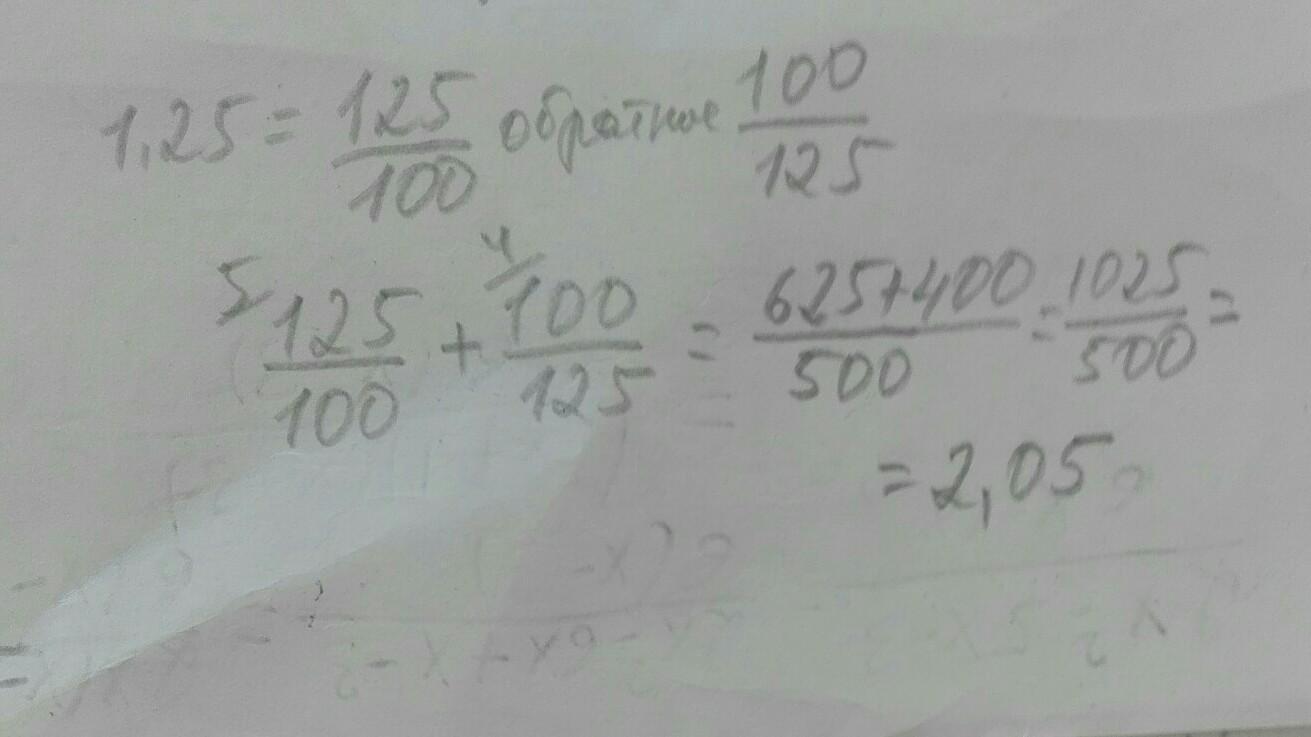 1,25 = 125/100 обратное 100/125
5 125/100 + 4/ 100/125 = 625+400/500 = 1025/500 =
= 2,05